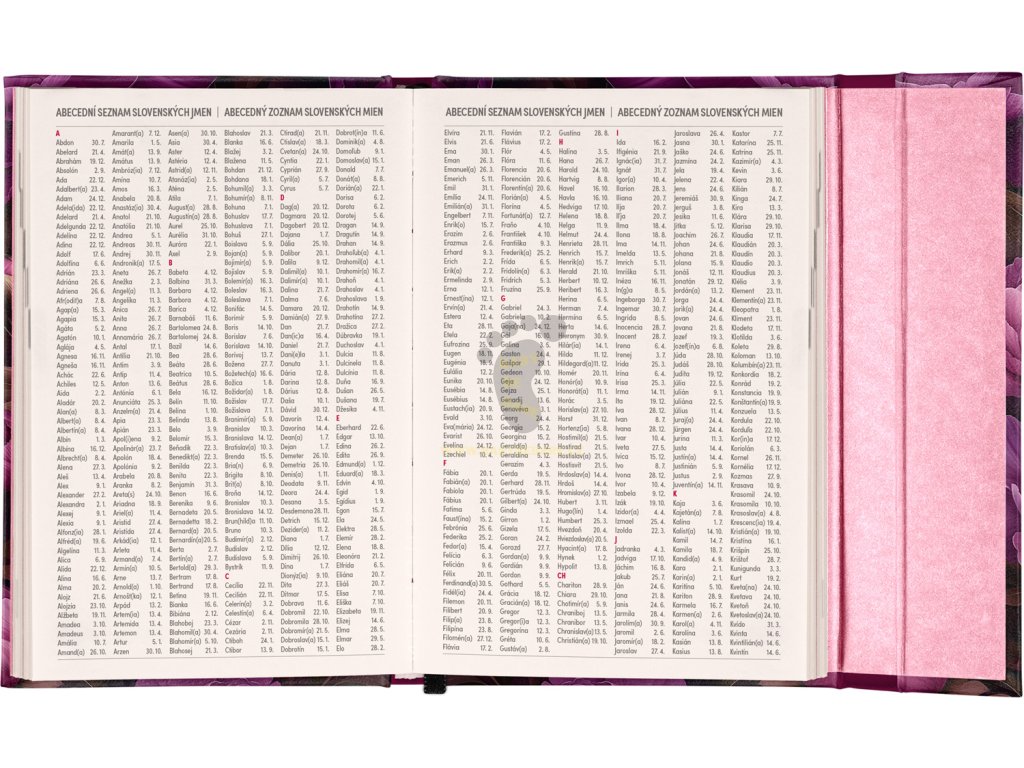 ABECEDNÍ SEZNAM SLOVENSKÝCH JMEN | ABECEDNÝ ZOZNAM SLOVENSKÝCH MIEN
A
Abdon 30. 7.
Abelard 21. 4.
Abrahám 19. 12.
Absolón 2. 9.
Ada 22. 12.
Adalbert(a) 23. 4.
Adam 24. 12.
Adela(ida) 22. 12.
Adelard 21. 4.
Adelgunda 22. 12.
Adelina 22. 12.
Adina 22. 12.
Adolf 17. 6.
Adolfína 6. 6.
Adrián 23. 3.
Adriána 26. 6.
Adriena 26. 6.
Afr(odit)a 7. 8.
Agap(a) 15. 3.
Agapia 15. 3.
Agáta 5. 2.
Agatón 10. 1.
Aglája 4. 5.
Agnesa 16. 11.
Agneša 16. 11.
Achác 22. 6.
Achiles 12. 5.
Aida 2. 2.
Aladár 20. 2.
Alan(a) 8. 3.
Albert(a) 8. 4.
Albertín(a) 8. 4.
Albín 1. 3.
Albína 16. 12.
Albrecht(a) 8. 4.
Alena 27. 3.
Aleš 9. 1.
Alex 9. 1.
Alexander 27. 2.
Alexandra 2. 1.
Alexej 9. 1.
Alexia 9. 1.
Alfonz(ia) 28. 1.
Alfréd(a) 19. 6.
Algelína 11. 3.
Alica 6. 9.
Alida 22. 12.
Alina 16. 6.
Alma 20. 2.
Alojz 21. 6.
Alojzia 23. 10.
Alžbeta 19. 11.
Amadea 3. 10.
Amadeus 3. 10.
Amália 10. 7.
Amand(a) 26. 10.
Amarant(a) 7. 12.
Amarila 1. 5.
Amát(a) 13. 9.
Amátus 13. 9.
Ambróz(ia) 7. 12.
Amína 10. 7.
Amos 16. 3.
Anabela 20. 8.
Anastáz(ia) 30. 4.
Anatol 21. 10.
Anatólia 21. 10.
Andrea 5. 1.
Andreas 30. 11.
Andrej 30. 11.
Andronik(a) 17. 5.
Aneta 26. 7.
Anežka 2. 3.
Angel(a) 11. 3.
Angelika 11. 3.
Anica 26. 7.
Anita 26. 7.
Anna 26. 7.
Annamária 26. 7.
Antal 17. 1.
Antília 21. 10.
Antim 3. 9.
Antip 11. 4.
Anton 13. 6.
Antónia 6. 1.
Anunciáta 25. 3.
Anzelm(a) 21. 4.
Apia 23. 3.
Apián 23. 3.
Apol(i)ena 9. 2.
Apolinár(a) 23. 7.
Apolón 18. 4.
Apolónia 9. 2.
Arabela 20. 8.
Aranka 8. 2.
Areta(s) 24. 10.
Ariadna 18. 9.
Ariel(a) 11. 4.
Aristid 27. 4.
Aristída 27. 4.
Arkád(ia) 12. 1.
Arleta 11. 4.
Armand(a) 7. 4.
Armín(a) 10. 5.
Arne 13. 7.
Arnold(a) 1. 10.
Arnošt(ka) 12. 1.
Arpád 13. 2.
Artem(ia) 13. 4.
Artemída 13. 4.
Artemon 13. 4.
Artur 5. 1.
Arzen 30. 10.
Asen(a) 30. 10.
Asia 30. 4.
Aster 12. 4.
Astéria 12. 4.
Astrid(a) 12. 11.
Atanáz(ia) 2. 5.
Aténa 2. 5.
Atila 7. 1.
August(a) 28. 8.
Augustín(a) 28. 8.
Aurel 25. 10.
Aurélia 31. 10.
Auróra 22. 1.
Axel 2. 9.
B
Babeta 4. 12.
Balbína 31. 3.
Barbara 4. 12.
Barbora 4. 12.
Barica 4. 12.
Barnabáš 11. 6.
Bartolomea 24. 8.
Bartolomej 24. 8.
Bazil 14. 6.
Bea 28. 6.
Beáta 28. 6.
Beatrica 10. 5.
Beátus 28. 6.
Bela 16. 12.
Belín 11. 10.
Belina 1. 10.
Belinda 13. 8.
Belo 3. 9.
Belomír 15. 3.
Beňadik 22. 3.
Benedikt(a) 22. 3.
Benilda 22. 3.
Benita 22. 3.
Benjamín 31. 3.
Benon 16. 6.
Berenika 9. 6.
Bernadeta 20. 5.
Bernadetta 18. 2.
Bernard(a) 20. 5.
Bernardín(a) 20. 5.
Berta 2. 7.
Bertín(a) 2. 7.
Bertold(a) 29. 3.
Bertram 17. 8.
Bertrand 17. 8.
Betina 19. 11.
Bianka 16. 6.
Bibiána 2. 12.
Blahoboj 23. 3.
Blahomil(a) 30. 4.
Blahomír(a) 5. 10.
Blahosej 21. 3.
Blahoslav 21. 3.
Blanka 16. 6.
Blažej 3. 2.
Blažena 11. 5.
Bohdan 21. 12.
Bohdana 18. 1.
Bohumil(a) 3. 3.
Bohumír(a) 8. 11.
Bohuna 7. 1.
Bohuslav 17. 7.
Bohuslava 7. 1.
Bohuš 27. 1.
Boislava 5. 9.
Bojan(a) 5. 9.
Bojimír(a) 5. 9.
Bojislav 5. 9.
Bolemír(a) 16. 3.
Boleslav 16. 3.
Boleslava 7. 1.
Bonifác 14. 5.
Borimír 5. 9.
Boris 14. 10.
Borislav 7. 6.
Borislava 14. 10.
Borivoj 13. 7.
Božena 27. 7.
Božetech(a) 16. 6.
Božica 1. 8.
Božidar(a) 1. 8.
Božislav 17. 7.
Božislava 7. 1.
Branimír(a) 5. 9.
Branislav(a) 10. 3.
Bratislava 14. 12.
Bratislav(a) 10. 3.
Brenda 15. 5.
Bria(n) 6. 9.
Brigita 10. 5.
Brit(a) 8. 10.
Broňa 14. 12.
Bronislav 3. 9.
Bronislava 14. 12.
Brun(hild)a 11. 10.
Bruno 10. 3.
Budimír 2. 12.
Budislav 2. 12.
Budislava 5. 9.
Bystrík 11. 9.
C
Cecília 22. 11.
Cecílián 22. 11.
Celerín(a) 3. 2.
Celestín(a) 6. 4.
Cézar 2. 11.
Cezária 2. 11.
Ctiboh 24. 1.
Ctibor 13. 9.
Ctirad(a) 21. 11.
Ctislav(a) 18. 3.
Cvetan(a) 24. 10.
Cyntia 22. 1.
Cyprián 27. 9.
Cyril(a) 5. 7.
Cyrus 5. 7.
D
Dag(a) 20. 12.
Dagmara 20. 12.
Dagobert 20. 12.
Dajana 1. 7.
Dália 25. 10.
Dalibor 20. 1.
Dalila 9. 12.
Dalimil(a) 10. 1.
Dalimír 10. 1.
Dalina 21. 7.
Dalma 7. 6.
Damara 20. 12.
Damián(a) 27. 9.
Dan 21. 7.
Dan(ic)a 16. 4.
Daniel 21. 7.
Dani(e)la 3. 1.
Danuta 3. 1.
Dária 12. 8.
Darina 12. 8.
Dárius 12. 8.
Daša 10. 1.
Dávid 30. 12.
Davorín 12. 4.
Davorína 14. 4.
Dean(a) 1. 7.
Dejan 1. 7.
Demeter 26. 10.
Demetria 26. 10.
Denis(a) 8. 11.
Deodata 9. 11.
Deora 24. 4.
Desana 3. 6.
Desdemona 28. 11.
Detrich 15. 12.
Dezider(a) 11. 2.
Diana 1. 7.
Dília 12. 12.
Dimitrij 26. 10.
Dina 1. 7.
Dionýz(a) 9. 10.
Dita 27. 3.
Ditmar 17. 5.
Dobrava 11. 6.
Dobromil 22. 10.
Dobromila 28. 10.
Dobromír(a) 21. 5.
Dobroslav(a) 15. 1.
Dobrotín 15. 1.
Dobrot(ín)a 11. 6.
Dominik(a) 4. 8.
Domoľub 9. 1.
Domoslav(a) 15. 1.
Donald 7. 7.
Donát(a) 8. 8.
Dorián(a) 22. 1.
Dorisa 6. 2.
Dorota 6. 2.
Dorotej 5. 6.
Dragan 14. 9.
Dragutín 14. 9.
Drahan 14. 9.
Draholub(a) 4. 1.
Drahomil(a) 4. 1.
Drahomír(a) 16. 7.
Drahoň 4. 1.
Drahoslav 4. 1.
Drahoslava 1. 9.
Drahotín 14. 9.
Drahotína 27. 2.
Družica 27. 2.
Dúbravka 19. 1.
Duchoslav 4. 1.
Dulcia 11. 8.
Dulcínela 11. 8.
Dulcínia 11. 8.
Duňa 16. 9.
Dušan 26. 5.
Dušana 19. 7.
Džesika 4. 11.
E
Eberhard 22. 6.
Edgar 13. 10.
Edina 26. 9.
Edita 26. 9.
Edmund(a) 1. 12.
Eduard(a) 18. 3.
Edvín 4. 10.
Egid 1. 9.
Egidius 1. 9.
Egon 15. 7.
Ela 24. 5.
Elektra 28. 5.
Elemír 28. 2.
Elena 18. 8.
Eleonóra 21. 2.
Elfrída 6. 5.
Eliána 20. 7.
Eliáš 20. 7.
Elisa 7. 10.
Eliška 7. 10.
Elizabeta 19. 11.
Elizej 14. 6.
Elma 28. 5.
Elmar 29. 5.
Elo 28. 2.
ABECEDNÍ SEZNAM SLOVENSKÝCH JMEN | ABECEDNÝ ZOZNAM SLOVENSKÝCH MIEN
Elvíra 21. 11.
Elvis 21. 6.
Ema 30. 1.
Eman 26. 3.
Emanuel(a) 26. 3.
Emerich 5. 11.
Emil 31. 1.
Emília 24. 11.
Emilián(a) 31. 1.
Engelbert 7. 11.
Enrik(o) 15. 7.
Erazim 2. 6.
Erazmus 2. 6.
Erhard 9. 3.
Erich 2. 2.
Erik(a) 2. 2.
Ermelinda 2. 9.
Erna 12. 1.
Ernest(ína) 12. 1.
Ervín(a) 21. 4.
Estera 12. 4.
Eta 28. 11.
Etela 22. 2.
Eufrozína 25. 9.
Eugen 18. 11.
Eugénia 18. 9.
Eulália 12. 2.
Eunika 20. 10.
Eusébia 14. 8.
Eusébius 14. 8.
Eustach(ia) 20. 9.
Evald 3. 10.
Eva(mária) 24. 12.
Evarist 26. 10.
Evelína 24. 12.
Ezechiel 10. 4.
F
Fábia 20. 1.
Fabián(a) 20. 1.
Fabiola 20. 1.
Fábius 20. 1.
Fatima 5. 6.
Faust(ína) 15. 2.
Febrónia 25. 6.
Federika 25. 2.
Fedor(a) 15. 4.
Felícia 6. 3.
Felicián 9. 6.
Félix 20. 11.
Ferdinand(a) 30. 5.
Fidél(ia) 24. 4.
Filemon 20. 11.
Filibert 20. 9.
Filip(a) 23. 8.
Filipína 23. 8.
Filomén(a) 27. 12.
Flávia 17. 2.
Flavián 17. 2.
Flávius 17. 2.
Flór 4. 5.
Flóra 11. 6.
Florencia 20. 6.
Florencián 20. 6.
Florentín(a) 20. 6.
Florián(a) 4. 5.
Florína 4. 5.
Fortunát(a) 12. 7.
Fraňo 4. 10.
František 4. 10.
Františka 9. 3.
Frederik(a) 25. 2.
Frída 6. 5.
Fridolín(a) 6. 3.
Fridrich 5. 3.
Fruzína 25. 9.
G
Gabriel 24. 3.
Gaston 24. 4.
Gašpar 29. 1.
Gedeon 10. 10.
Geja 24. 12.
Gejza 25. 1.
Genadij 13. 6.
Genovéva 3. 1.
Georg 24. 4.
Georgia 15. 2.
Georgína 15. 2.
Gerald(a) 5. 12.
Geraldína 5. 12.
Gerazim 4. 3.
Gerda 19. 5.
Gerhard 28. 11.
Gertrúda 19. 5.
Gilbert(a) 24. 10.
Ginda 3. 3.
Girron 1. 2.
Gizela 17. 5.
Goran 24. 2.
Gorazd 27. 7.
Gordan(a) 9. 9.
Gordián 9. 9.
Gordon 9. 9.
Gothard 5. 5.
Grácia 18. 12.
Gracián(a) 18. 12.
Gregor 12. 3.
Gregora 12. 3.
Gregorína 12. 3.
Gréta 10. 6.
Gustáv(a) 2. 8.
Gustína 28. 8.
H
Halina 3. 5.
Hana 26. 7.
Harald 24. 10.
Hartvig 16. 10.
Havel 16. 10.
Havla 16. 10.
Hedviga 17. 10.
Helena 18. 8.
Helga 11. 9.
Helmut 24. 4.
Henrieta 28. 11.
Henrich 15. 7.
Henrik(a) 15. 7.
Herald 21. 10.
Herbert 10. 12.
Heribert 16. 3.
Herína 6. 5.
Herman 7. 4.
Hermína 6. 5.
Herta 14. 6.
Hieronym 30. 9.
Hilár(ia) 14. 1.
Hilda 11. 12.
Hildegard(a) 11. 12.
Homér 20. 11.
Honór(a) 10. 9.
Honorát(a) 11. 1.
Horác 3. 5.
Horislav(a) 27. 10.
Horst 31. 12.
Hortenz(ia) 5. 8.
Hostimil(a) 21. 5.
Hostirad 21. 5.
Hostislav(a) 21. 5.
Hostisvit 21. 5.
Hrdoslav(a) 14. 4.
Hrdoš 14. 4.
Hromislav(a) 27. 10.
Hubert 3. 11.
Hugo(lín) 1. 4.
Humbert 25. 3.
Hvezdoň 20. 4.
Hviezdoslav(a) 20. 5.
Hyacint(a) 17. 8.
Hynek 1. 2.
Hypolit 13. 8.
CH
Chariton 28. 9.
Chiara 29. 10.
Chotimír(a) 5. 9.
Chraniboj 13. 5.
Chranibor 13. 5.
Chranislav(a) 13. 5.
Christián(a) 19. 10.
I
Ida 16. 2.
Ifigénia 21. 9.
Ignác(ia) 31. 7.
Ignát 31. 7.
Igor(a) 10. 4.
Ilarion 28. 3.
Iliana 20. 7.
Ilja 20. 7.
Iľja 20. 7.
Ilma 18. 4.
Ilona 18. 8.
Ima 14. 11.
Imelda 13. 5.
Imrich 5. 11.
Imriška 5. 11.
Inéza 16. 11.
In(g)a 8. 5.
Ingeborga 30. 7.
Ingemar 30. 7.
Ingrida 8. 5.
Inocencia 28. 7.
Inocent 28. 7.
Irena 6. 4.
Irenej 3. 7.
Irida 25. 3.
Irína 6. 4.
Irisa 25. 3.
Irma 14. 9.
Ita 19. 12.
Iva 28. 12.
Ivan 8. 7.
Ivana 28. 12.
Ivar 10. 4.
Iveta 27. 5.
Ivica 15. 12.
Ivo 8. 7.
Ivona 28. 12.
Ivor 10. 4.
Izabela 9. 12.
Izák 24. 10.
Izidor(a) 4. 4.
Izmael 25. 4.
Izolda 22. 3.
J
Jadranka 4. 3.
Jadviga 17. 10.
Jáchim 16. 8.
Jakub 25. 7.
Ján 24. 6.
Jana 21. 8.
Janis 24. 6.
Jarmila 28. 4.
Jarolím(a) 30. 9.
Jaromil 2. 6.
Jaromír(a) 18. 2.
Jaroslav 27. 4.
Jaroslava 26. 4.
Jasna 30. 1.
Jaško 24. 6.
Jazmína 24. 2.
Jela 19. 4.
Jelena 22. 4.
Jens 24. 6.
Jeremiáš 30. 9.
Jerguš 3. 8.
Jesika 11. 6.
Jitka 5. 12.
Joachim 26. 7.
Johan 24. 6.
Johana 21. 8.
Jolana 15. 9.
Jonáš 12. 11.
Jonatán 29. 12.
Jordán(a) 13. 2.
Jorga 24. 4.
Jorik(a) 24. 4.
Jovan 24. 6.
Jovana 21. 8.
Jozef 19. 3.
Jozef(ín)a 6. 8.
Júda 28. 10.
Judáš 28. 10.
Judita 19. 12.
Júlia 22. 5.
Julián 9. 1.
Juliána 22. 5.
Július 11. 4.
Juraj(a) 24. 4.
Jürgen 24. 4.
Jurina 11. 3.
Justa 14. 4.
Justín(a) 14. 4.
Justinián 5. 9.
Justus 2. 9.
Juventín(a) 14. 11.
K
Kaja 3. 6.
Kajetán(a) 7. 8.
Kalina 1. 7.
Kalist(a) 14. 10.
Kamil 14. 7.
Kamila 18. 7.
Kandid(a) 4. 9.
Kara 2. 1.
Karín(a) 2. 1.
Karitína 5. 10.
Kariton 28. 9.
Karmela 16. 7.
Karmen(a) 2. 6.
Karol(a) 4. 11.
Karolína 3. 6.
Kasián 13. 8.
Kasius 13. 8.
Kastor 7. 7.
Katarína 25. 11.
Katrína 25. 11.
Kazimír(a) 4. 3.
Kevin 3. 6.
Kiara 29. 10.
Kilián 8. 7.
Kinga 24. 7.
Kira 13. 3.
Klára 29. 10.
Klarisa 29. 10.
Klaudia 17. 3.
Klaudián 20. 3.
Klaudín 20. 3.
Klaudio 20. 3.
Klaudius 20. 3.
Klélia 3. 9.
Klement 23. 11.
Klementín(a) 23. 11.
Kleopatra 1. 8.
Kliment 23. 11.
Klodeta 17. 11.
Klotilda 3. 6.
Koleta 29. 8.
Koloman 13. 10.
Kolumbín(a) 23. 11.
Konkordia 18. 2.
Konrád 19. 2.
Konstancia 19. 9.
Konštantín(a) 19. 9.
Konzuela 13. 5.
Kordula 22. 10.
Korduľa 22. 10.
Kor(in)a 17. 12.
Koriolán 6. 3.
Kornel 26. 11.
Kornélia 17. 12.
Kozmas 27. 9.
Krasava 10. 9.
Krasomil 24. 10.
Krasomila 10. 10.
Krasoslav(a) 4. 8.
Krescenc(ia) 19. 4.
Kristián(a) 19. 10.
Kristína 16. 1.
Krišpín 25. 10.
Krištof 28. 7.
Kunigunda 3. 3.
Kurt 19. 2.
Kveta(na) 24. 10.
Kvetava 24. 10.
Kvetoň 24. 10.
Kvetoslav(a) 24. 10.
Kvído 31. 3.
Kvinta 14. 6.
Kvintilián(a) 14. 6.
Kvintín 14. 6.